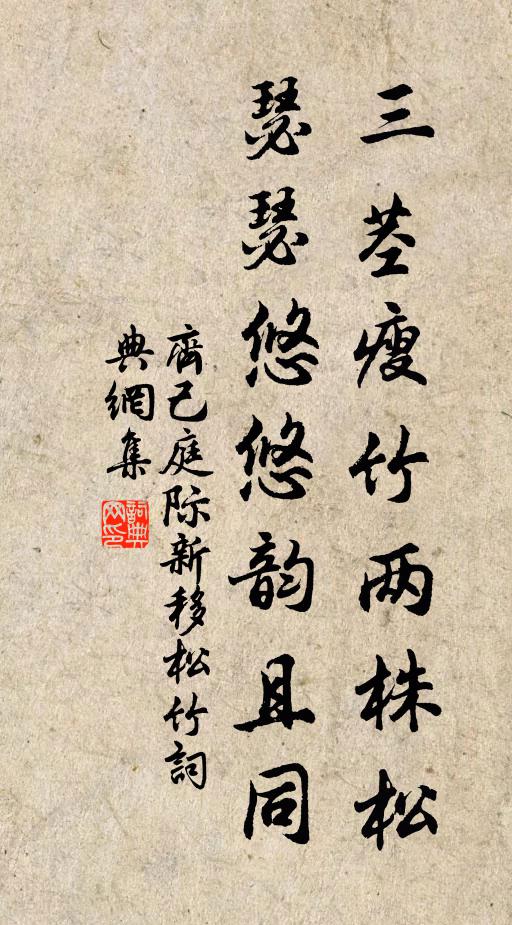 三茎瘦竹两株松
瑟瑟悠悠韵且同
齊己庭际新移松竹詞
典網集
詞典网印